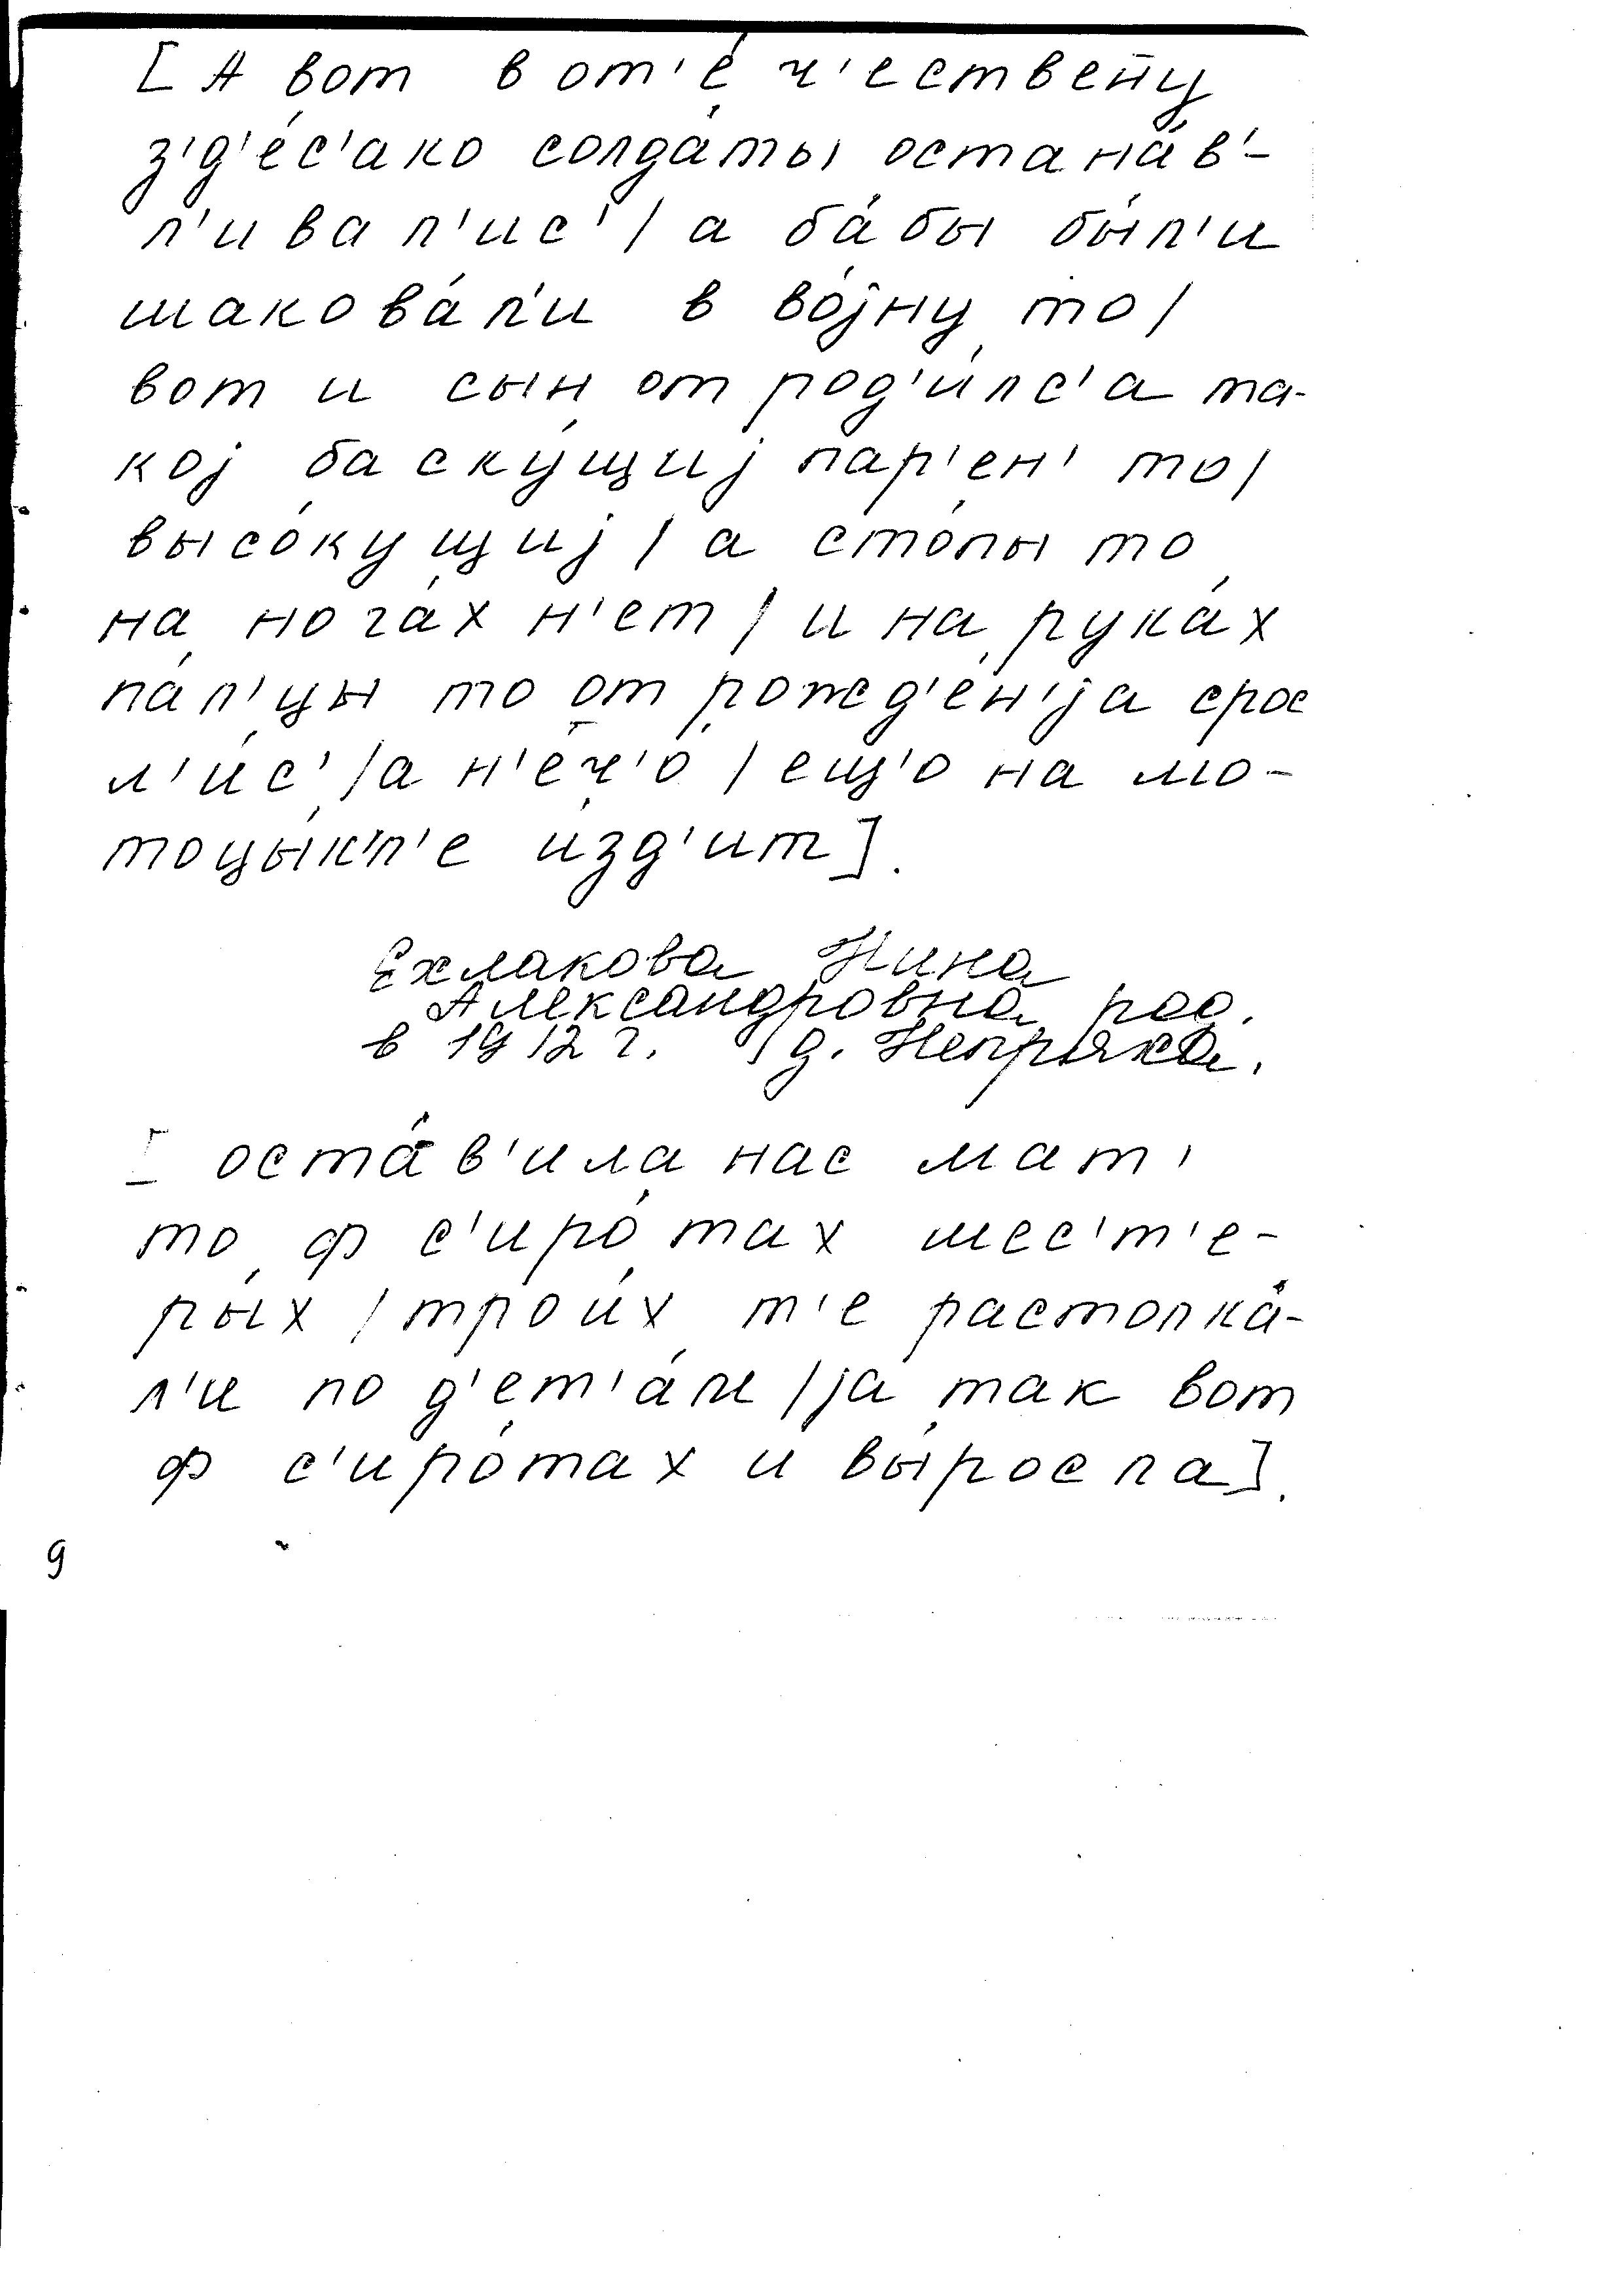 [ А вот в от'е́ч'ествен̄у
з'д'е́с'ако солда́ты остана́в'-
л'ивал'ис' / а ба́бы бы́л'и
шакова́л'и в во́јну то /
вот и сын от род'и́лс'а та-
кој баску́щиј пар'ен' то /
высо́кущиј / а сто́пы то
на нога́х н'ет / и на рука́х
па́л'цы то от рожд'е́н'ја срос
л'и́с' / а н'е́ч'о́ / ещ'о на мо-
тоцы́к'л'е и́зд'ит ].
Ехлакова Нина
Александровна род.
в 1912 г. д. Непряха.
[ оста́в'ила нас мат'
то ф с'иро́тах шес'т'е-
ры́х / трои́х т'е растолка́-
л'и по д'ет'а́м / ја так вот
ф с'иро́тах и вы́росла ].
9